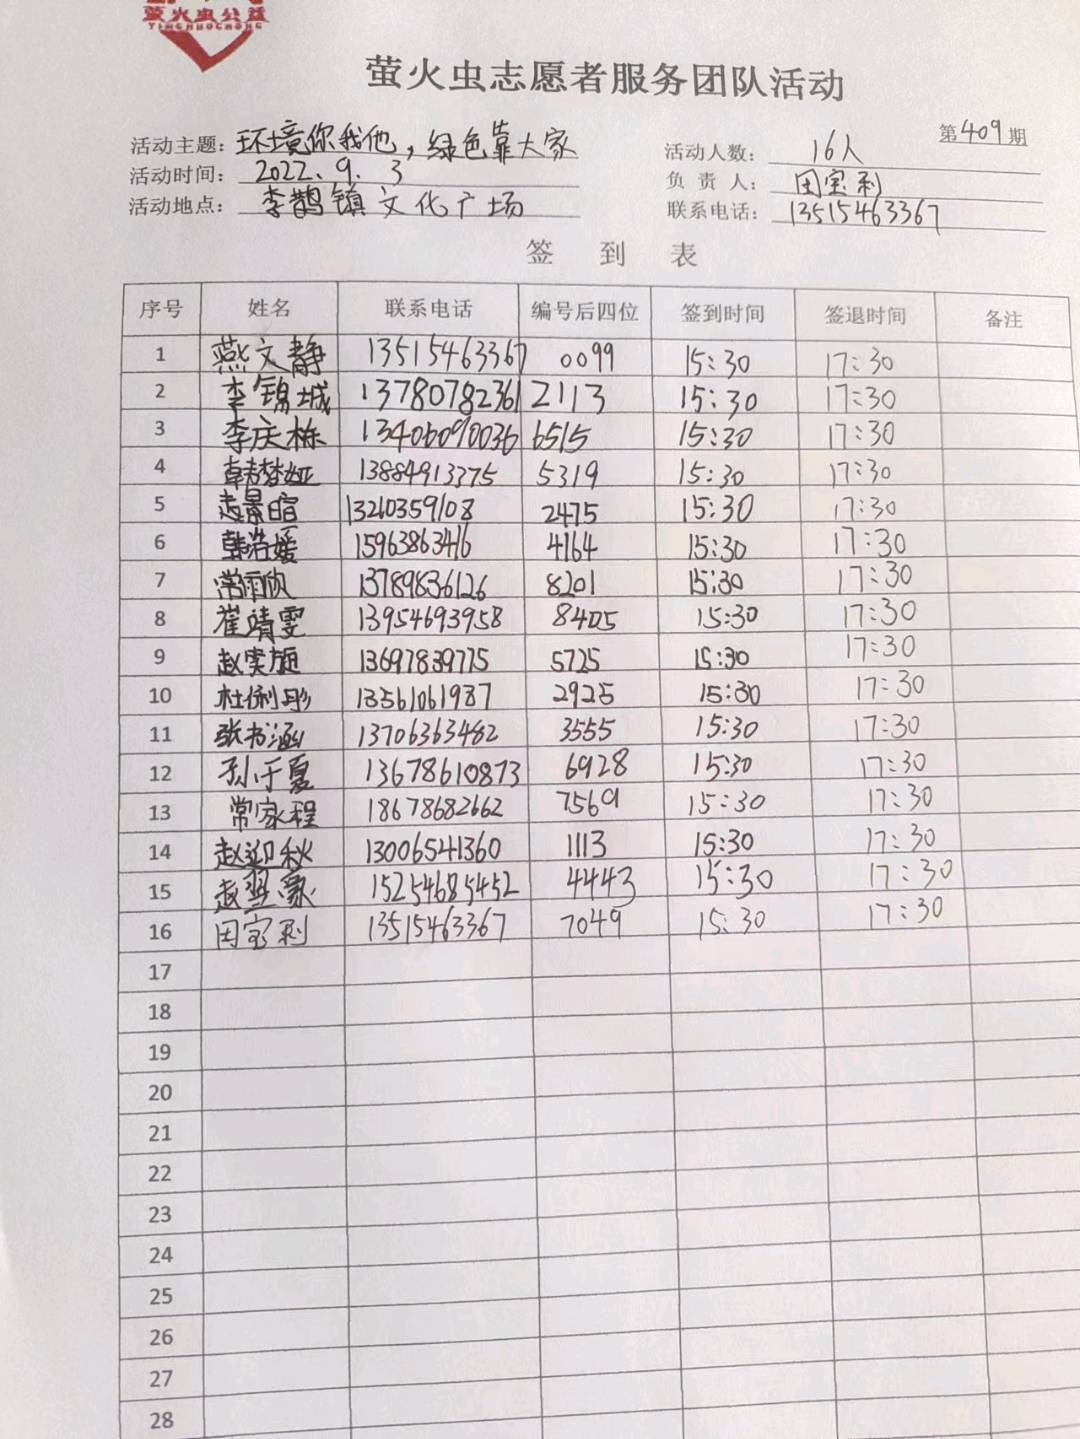 萤火虫公益
YINGHUOCHONG
萤火虫志愿者服务团队活动
第409期
活动主题：环境你我他，绿色靠大家 活动人数：16人
活动时间：2022.9.3 负责人：田宝利
活动地点：李鹊镇文化广场 联系电话：13515463367
签到表
序号 姓名 联系电话 编号后四位 签到时间 签退时间 备注
1 燕文静 13515463367 0099 15:30 17:30
2 李锦城 13780782361 2113 15:30 17:30
3 李庆栋 13406090036 6515 15:30 17:30
4 韩梦娅 13884913375 5319 15:30 17:30
5 赵景暄 13210359108 2475 15:30 17:30
6 韩浩媛 15963863416 4164 15:30 17:30
7 常雨欣 13789836126 8201 15:30 17:30
8 崔靖雯 13954693958 8405 15:30 17:30
9 赵奕 13697839775 5725 15:30 17:30
10 杜俐彤 13561061987 2925 15:30 17:30
11 张书涵 13706363482 3555 15:30 17:30
12 孙于夏 13678610873 6928 15:30 17:30
13 常家程 18678682662 7569 15:30 17:30
14 赵迎秋 13006541360 1113 15:30 17:30
15 赵翌豪 15254685452 4443 15:30 17:30
16 田宝利 13515463367 7049 15:30 17:30
17
18
19
20
21
22
23
24
25
26
27
28